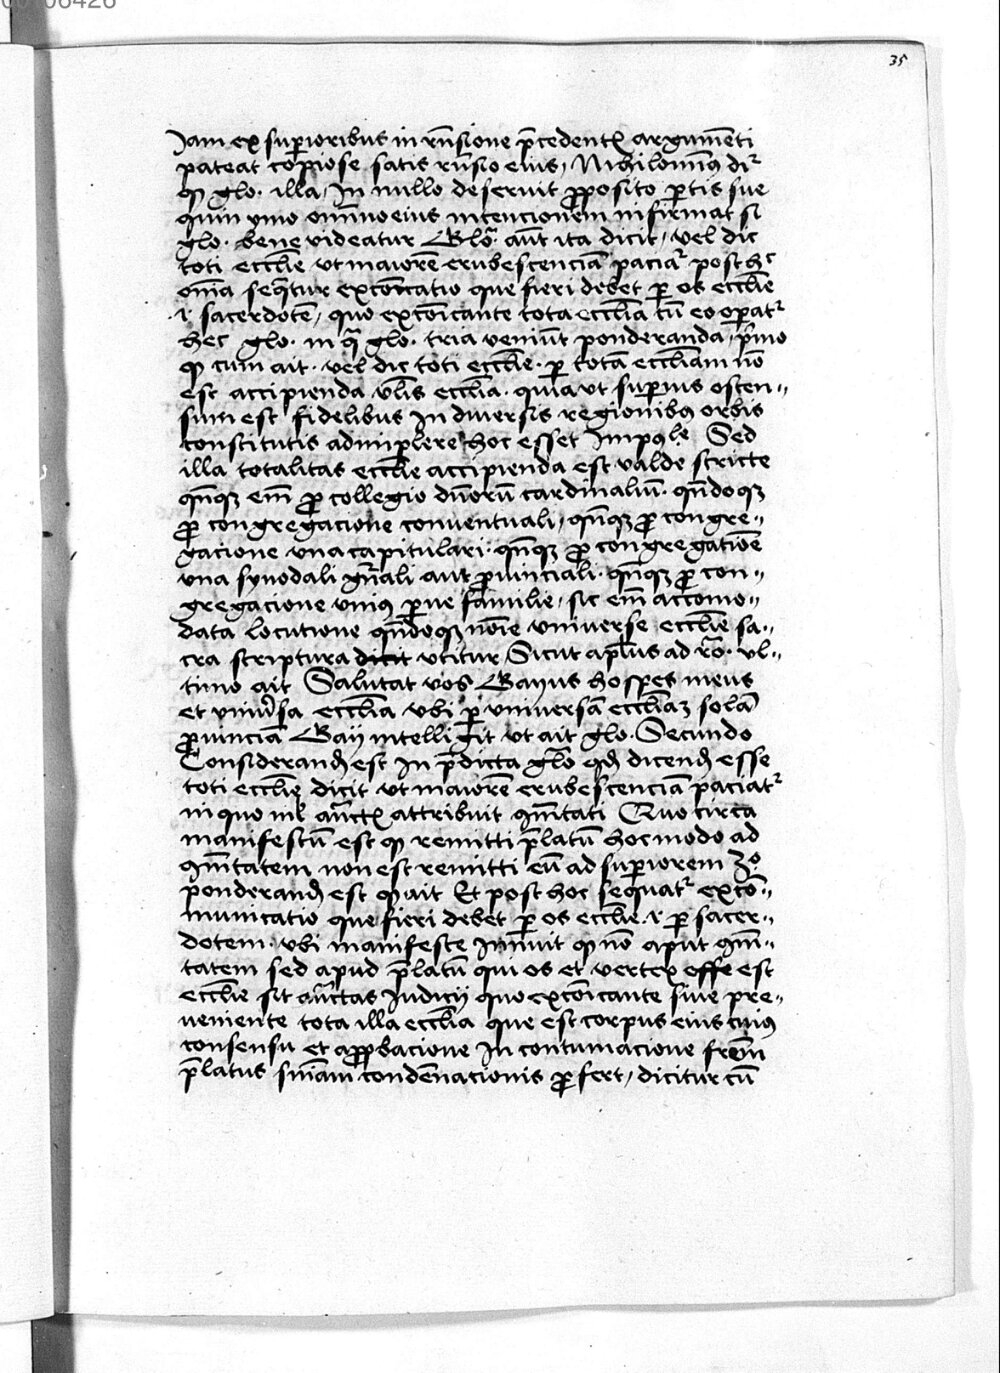 35
Jam ex superioribus in rn̄sione p̄cedentꝭ argumēti
pateat copiose satis rn̄sio eius / Nichilominꝰ dr̄
ꝙ glo. illa / In nullo deseruit ꝓposito ꝑtis sue
quin ymo omīno eius intencionem infirmat si
glo. bene videatur Glo. aūt ita dicit / vel dic
toti eccl̄ie vt maiorē erubescenciā paciaꝉ post hͨ
om̄ia seq̄tur excōicatio que fieri debet ꝑ os eccl̄ie
.i. sacerdotē / quo excōicante tota eccl̄ia cū eo oꝑatr̄
hec glo. in q̄ glo. tria veniūt ponderanda / p̄mo
ꝙ cum ait. vel dic toti eccl̄ie. ꝑ totā eccl̄iam nō
est accipienda vl̄is eccl̄ia. quia vt suꝑius osten-
sum est fidelibus In diuersis regionibꝰ orbis
constitutis adimplere hoc esset Impol̄e Sed
illa totalitas eccl̄ie accipienda est valde stricte
qn̄qꝫ em̄ ꝓ collegio dn̄orū cardinaliū. qn̄doqꝫ
ꝓ congregacione conuentuali / qn̄qꝫ ꝓ congre-
gacione vna capitulari. qn̄qꝫ ꝓ congregatiōe
vna synodali gn̄ali aut ꝓuinciali. qn̄qꝫ ꝓ con-
gregacione vniꝰ ꝑue familie / sic em̄ accomo-
data locutione qn̄doqꝫ noīe vniuerse eccl̄ie sa-
cra scriptura dicit vtitur / Sicut apl̄us ad ro. vl-
timo ait Salutat vos Gayus hospes meus
et vniūsa eccl̄ia vbi ꝑ vniuersā eccl̄iaꝫ solā
ꝓuinciā Gaij intelligit vt ait glo. Secundo
Considerand̄ est In p̄dicta glo qd̄ dicend̄ esse
toti eccl̄ie dicit vt maiorē erubescenciā paciatr̄
in quo nil auctꝭ attribuit qm̄tati Quo circa
manifestū est ꝙ remitti p̄latū hoc modo ad
qm̄tatem non est remitti eū ad suꝑiorem 3º
ponderand̄ est ꝙ ait Et post hoc sequatr̄ excō-
municatio que fieri debet ꝑ os eccl̄ie .i. ꝑ sacer-
dotem. vbi manifeste Innuit ꝙ nō aput qm̄-
tatem sed apud p̄latū qui os et vertex est
eccl̄ie sit auctas Iudicij quo excōicante siue pre-
ueniente tota illa eccl̄ia que est corpus eius cuiꝰ
consensu et aꝓbacione In contumacione
p̄latus sn̄iam condēnacionis ꝓfert / dicitur cū